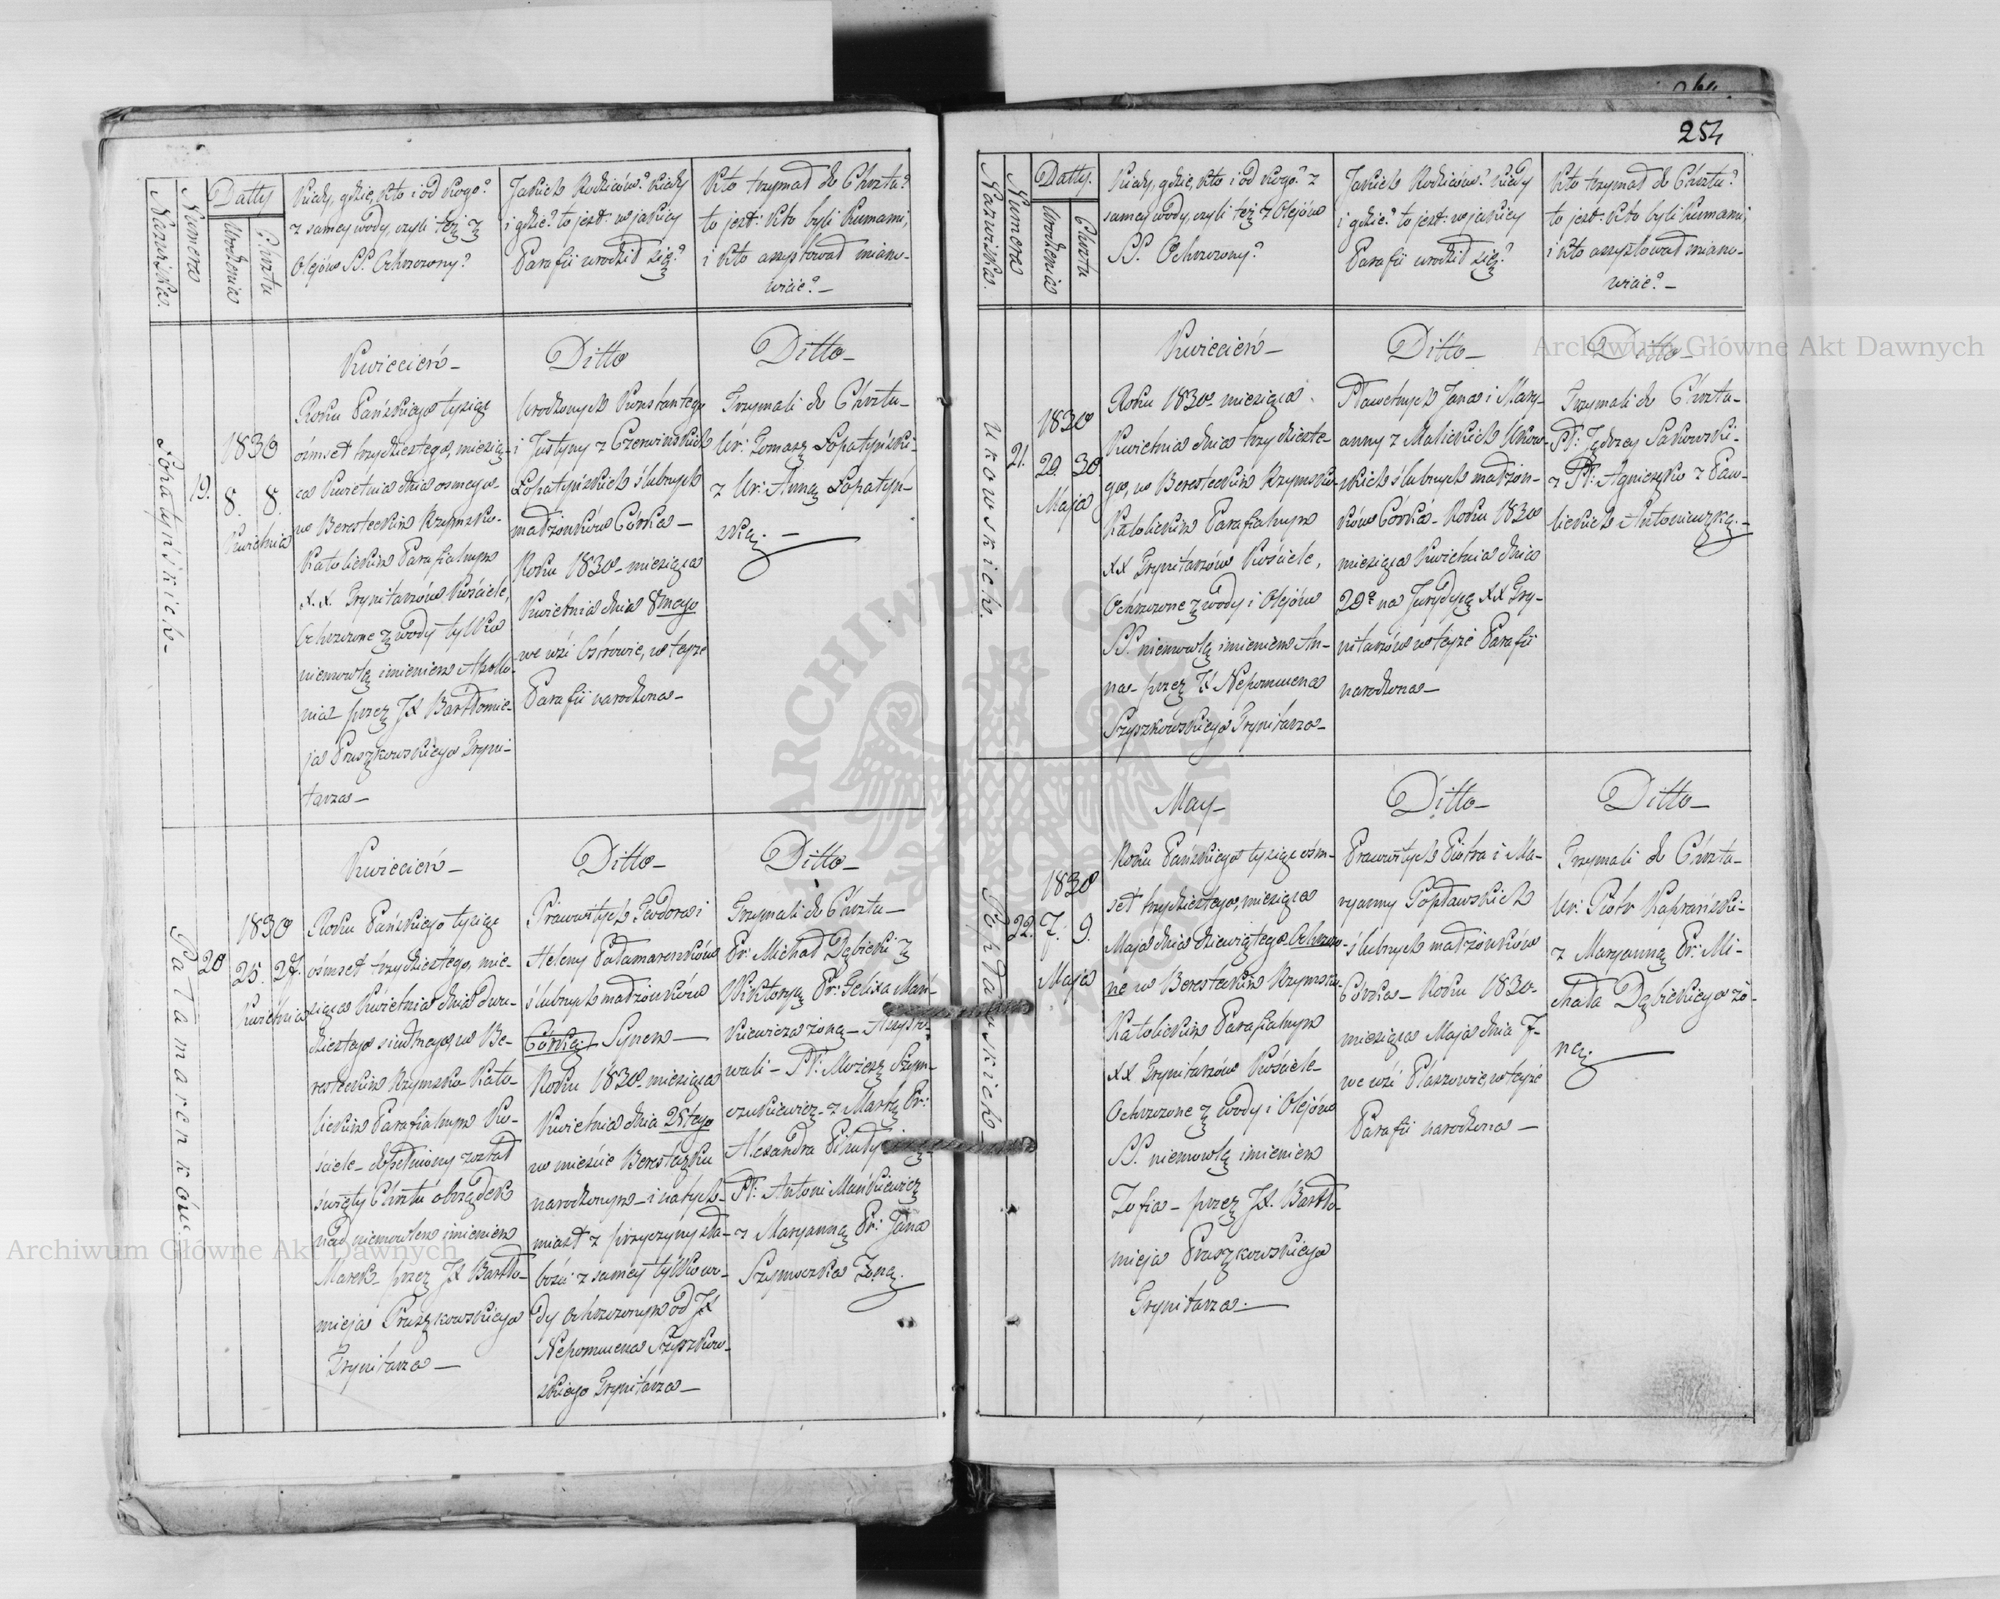 254
Nazwiska.
Numera
Datty
Urodzenia
Chrztu
Kiedy, gdzie, kto i od kogo?
z samey wody, czyli też z
Olejów SS. Ochrzczony?
Jakich Rodziców? kiedy
i gdzie? to jest: w jakiey
Parafii urodził się?
Kto trzymał do Chrztu?
to jest: kto byli kumami,
i kto assystował miano-
wicie?
Łopatyńskich
19.
1830
8. 8.
Kwietnia
Kwiecień
Roku Pańskiego tysiąc
ośmset trzydziestego, miesią-
ca Kwietnia dnia osmego
w Beresteckim Rzymsko-
Katolickim Parafialnym
X.X. Trynitarzów Kościele,
Ochrzczone z wody tylko
niemowlę imieniem Apollo-
nia przez JX Bartłomie-
ja Pruszkowskiego Tryni-
tarza
Ditto
Urodzonych Konstantego
i Justyny z Czerwińskich
Łopatyńskich ślubnych
małżonków Córka
Roku 1830 miesiąca
Kwietnia dnia 8mego
we wsi Ostrowie, w teyże
Parafii narodzona
Ditto
Trzymali do Chrztu
Ur: Tomasz Łopatyński
z Ur: Anną Łopatyń-
ską.
Palamarenków
20
1830
25. 27.
Kwietnia
Kwiecień
Roku Pańskiego tysiąc
ośmset trzydziestego, mie-
siąca Kwietnia dnia dwu-
dziestego siodmego, w Be-
resteckim Rzymsko Kato-
lickim Parafialnym Ko-
ściele dopełniony został
święty Chrztu obrządek
nad niemowlem imieniem
Marek przez JX Bartło-
mieja Pruszkowskiego
Trynitarza
Ditto
Prawowitych Teodora i
Heleny Palamarenków
ślubnych małżonków
Córka Synem
Roku 1830 miesiąca
Kwietnia dnia 25tego
w mieście Beresteczku
narodzonym i natych-
miast z przyczyny sła-
bości z samey tylko wo-
dy ochrzczonym od JX
Nepomucena Szyszkow-
skiego Trynitarza
Ditto
Trzymali do Chrztu
Pr: Michał Dąbicki z
Wiktoryą Pr: Felixa Mań-
kiewicza żoną Assysto-
wali Pł: Mojżesz Szym-
czukiewicz z Martą Pr:
Alexandra
Pł: Antoni Mańkiewicz
z Maryanną Pr: Jana
Szymoczka Żoną.
Nazwiska.
Numera
Datty.
Urodzenia
Chrztu
Kiedy, gdzie, kto i od kogo? z
samey wody, czyli też z Olejów
SS. Ochrzczony?
Jakich Rodziców? kiedy
i gdzie? to jest: w jakiey
Parafii urodził się?
Kto trzymał do Chrztu?
to jest: kto byli kumami,
i kto assystował miano-
wicie?
Ukowskich.
21.
1830
29. 30
Maja
Kwiecień
Roku 1830 miesiąca
Kwietnia dnia trzydzieste-
go, w Beresteckim Rzymsko
Katolickim Parafialnym
XX Trynitarzów Kościele,
Ochrzczone z wody i Olejów
SS. niemowlę imieniem An-
na przez JX Nepomucena
Szyszkowskiego Trynitarza
Ditto
Sławetnych Jana i Mary-
anny z Malickich Ukow-
skich ślubnych małżon-
ków Córka Roku 1830
miesiąca Kwietnia dnia
29o na Jurydyce XX Try-
nitarzów w teyże Parafii
narodzona
Ditto
Trzymali do Chrztu
Pł: Jędrzey Sakowski
z Pł: Agnieszką z Paw-
lickich Antoniuszką.
Popławskich
22.
1830
7. 9.
Maja
May
Roku Pańskiego tysiąc ośm-
set trzydziestego, miesiąca
Maja dnia dziewiątego Ochrzczo-
ne w Beresteckim Rzymsko-
Katolickim Parafialnym
XX Trynitarzów Kościele
Ochrzczone z wody i Olejów
SS. niemowlę imieniem
Zofia przez JX. Bartło-
mieja Pruszkowskiego
Trynitarza.
Ditto
Prawowitych Piotra i Ma-
ryanny Popławskich
ślubnych małżonków
Córka Roku 1830
miesiąca Maja dnia 7
we wsi Plaszowie, w teyże
Parafii narodzona
Ditto
Trzymali do Chrztu
Ur: Piotr Kaprański
z Maryanną Pr: Mi-
chała Dąbickiego żo-
ną.
Archiwum Główne Akt Dawnych
Archiwum Główne Akt Dawnych